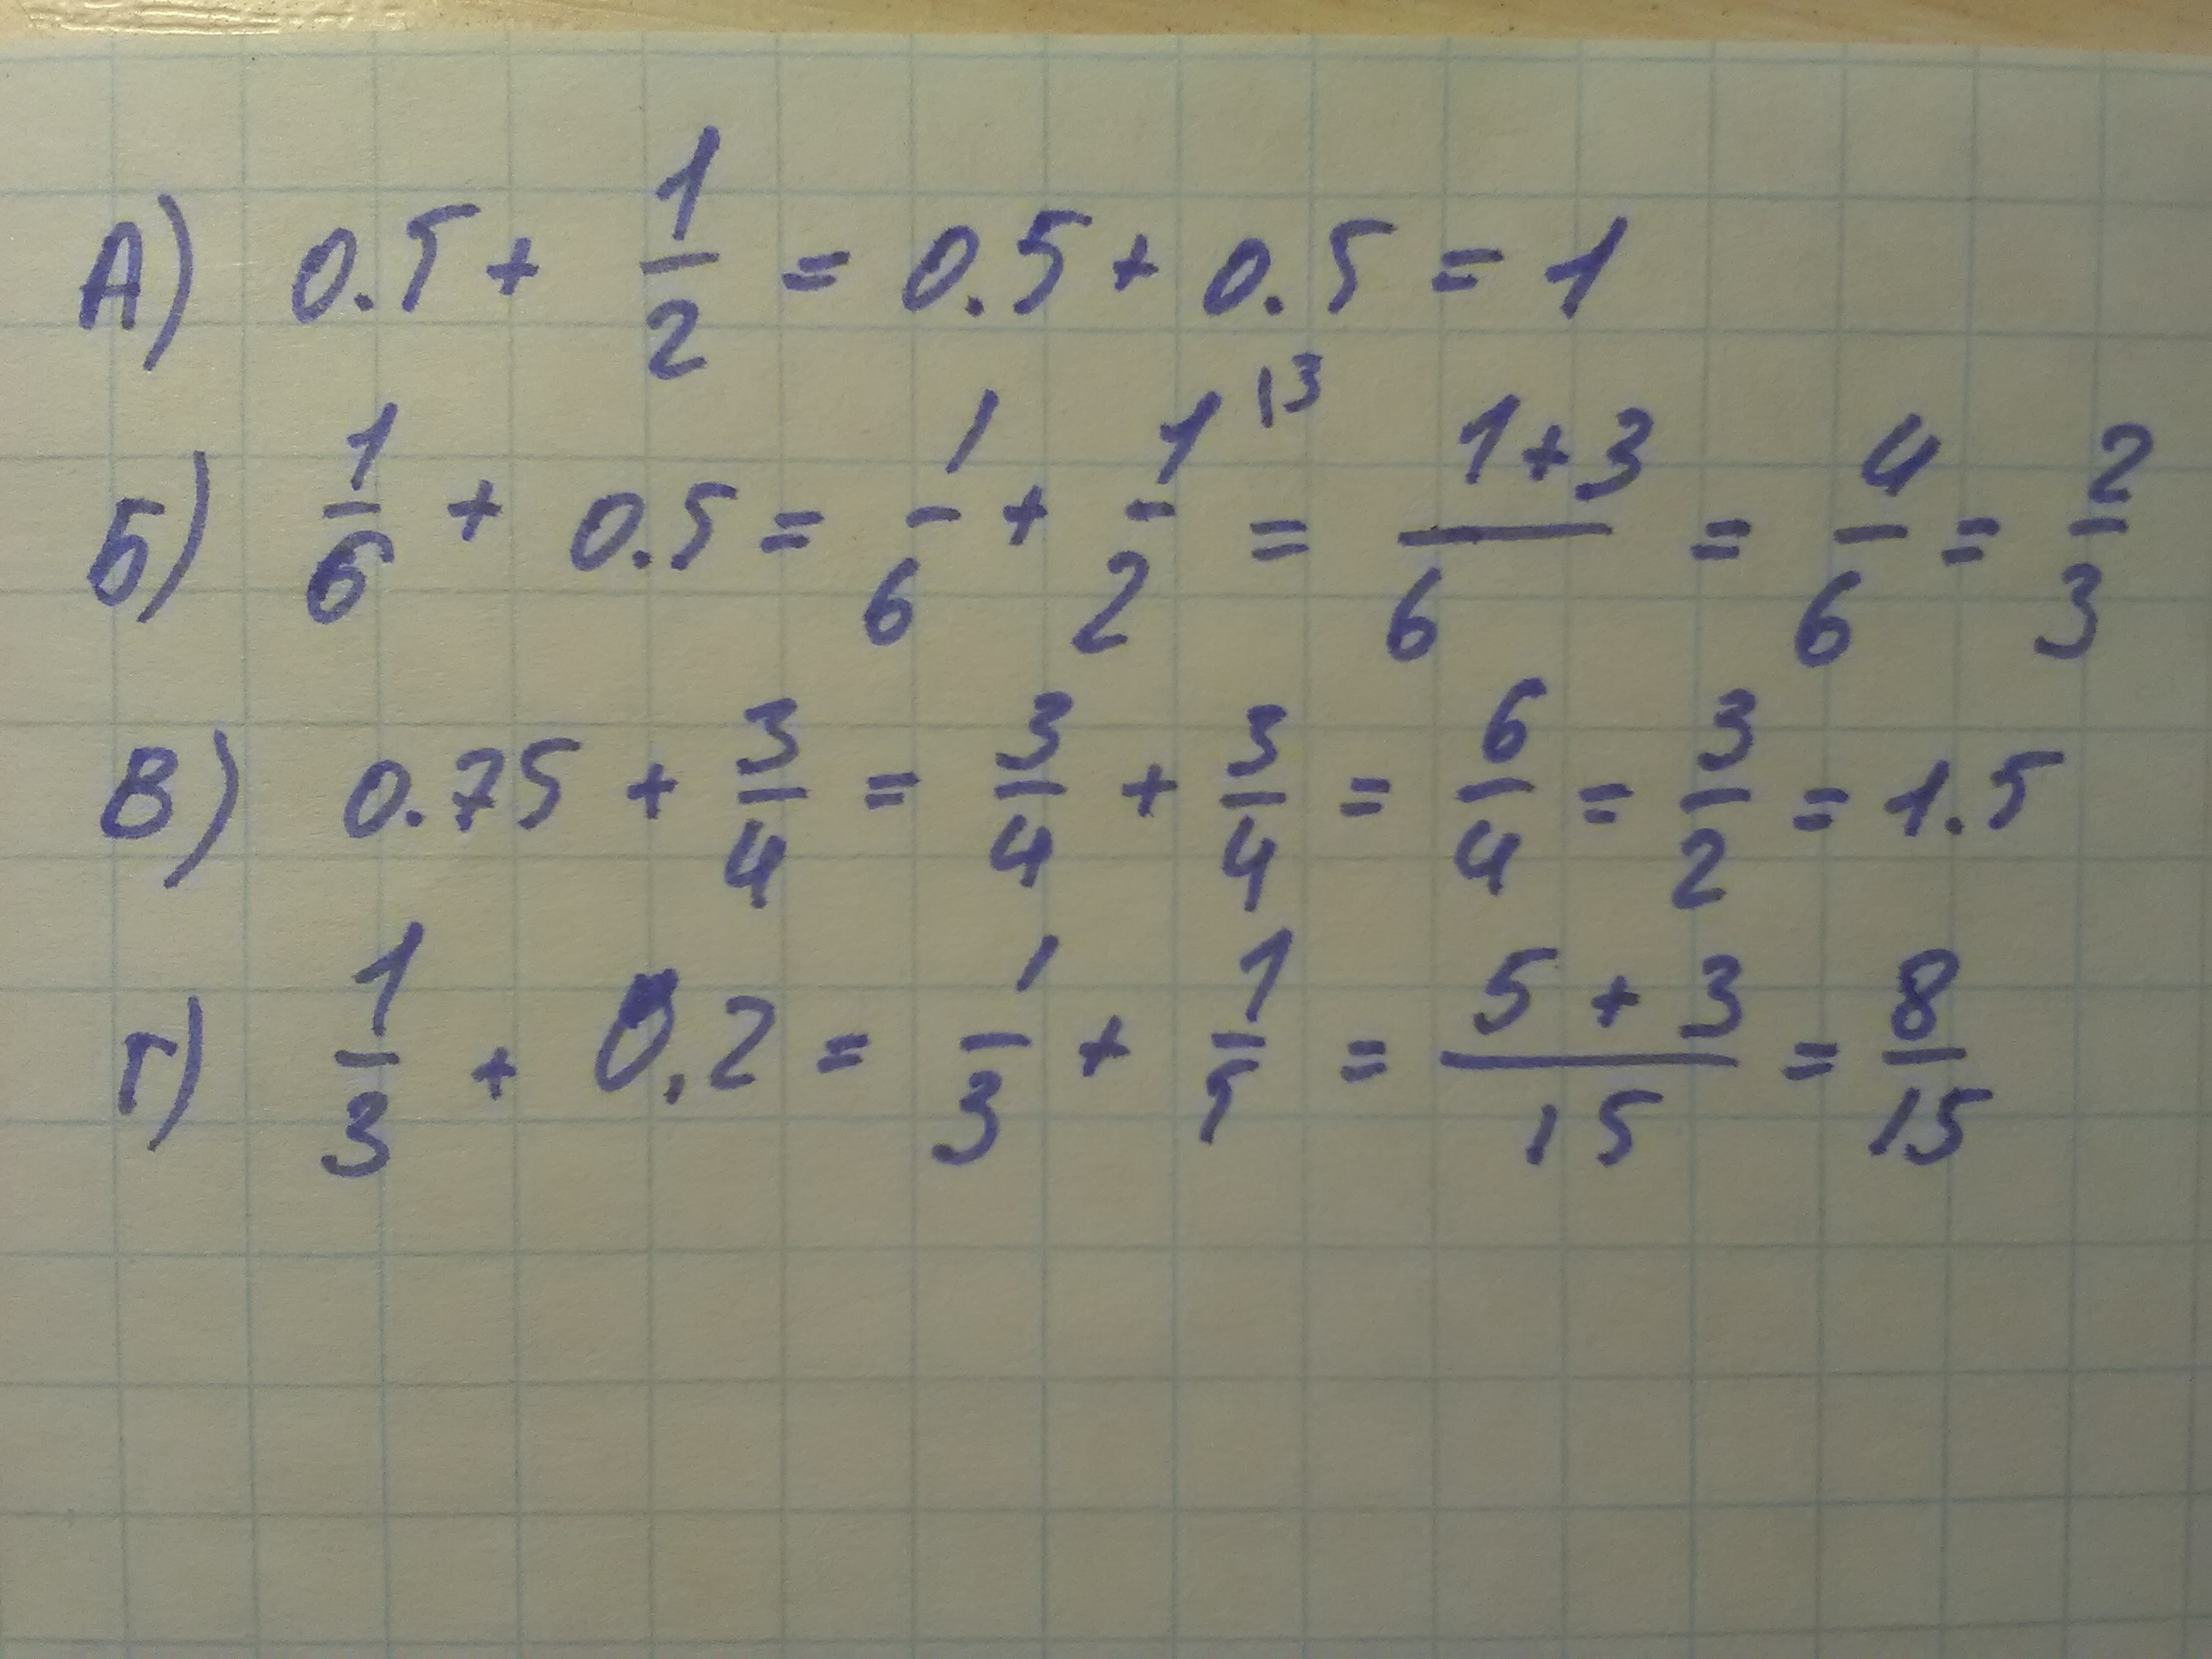 А) 0.5 + 1/2 = 0.5 + 0.5 = 1
Б) 1/6 + 0.5 = 1/6 + 1/2 |3 = (1+3)/6 = 4/6 = 2/3
В) 0.75 + 3/4 = 3/4 + 3/4 = 6/4 = 3/2 = 1.5
Г) 1/3 + 0.2 = 1/3 + 1/5 = (5+3)/15 = 8/15